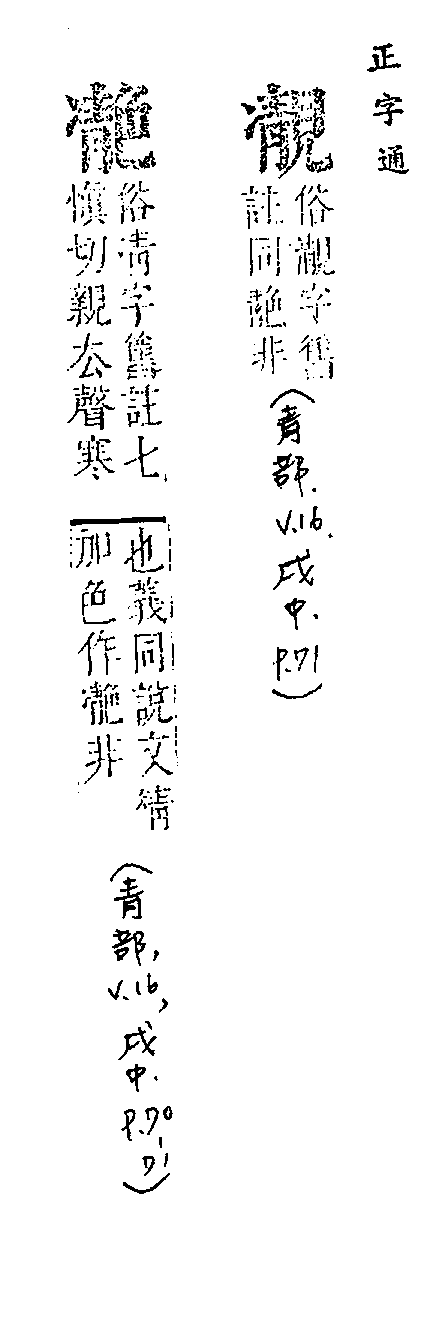 正字通
俗靚字舊
註同靘非
(青部.V.16.戌中.P.71)
俗凊字舊註七
慎切親去聲寒
也義同說文凊
加色作非
(青部,V.16,戌中.P.70,71)